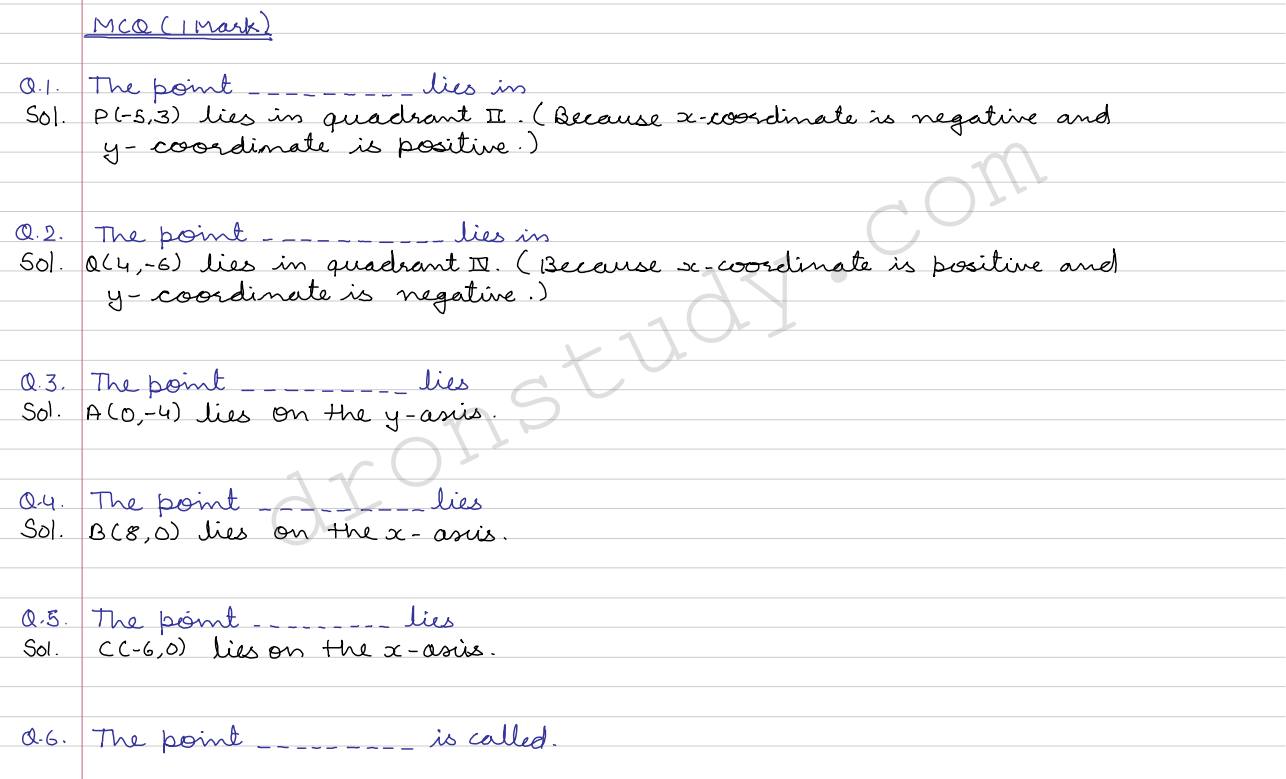 MCQ (1 Mark)
Q.1. The point _ _ _ _ _ _ _ _ _ lies in
Sol. P(-5,3) lies in quadrant II. (Because x-coordinate is negative and
y- coordinate is positive.)
Q.2. The point _ _ _ _ _ _ _ _ _ _ lies in
Sol. Q(4,-6) lies in quadrant IV. (Because x-coordinate is positive and
y- coordinate is negative.)
Q.3. The point _ _ _ _ _ _ _ _ _ lies
Sol. A(0,-4) lies on the y-axis.
Q.4. The point _ _ _ _ _ _ _ _ _ lies
Sol. B(8,0) lies on the x-axis.
Q.5. The point _ _ _ _ _ _ _ _ _ lies
Sol. C(-6,0) lies on the x-axis.
Q.6. The point _ _ _ _ _ _ _ _ _ is called.
dronstudy.com